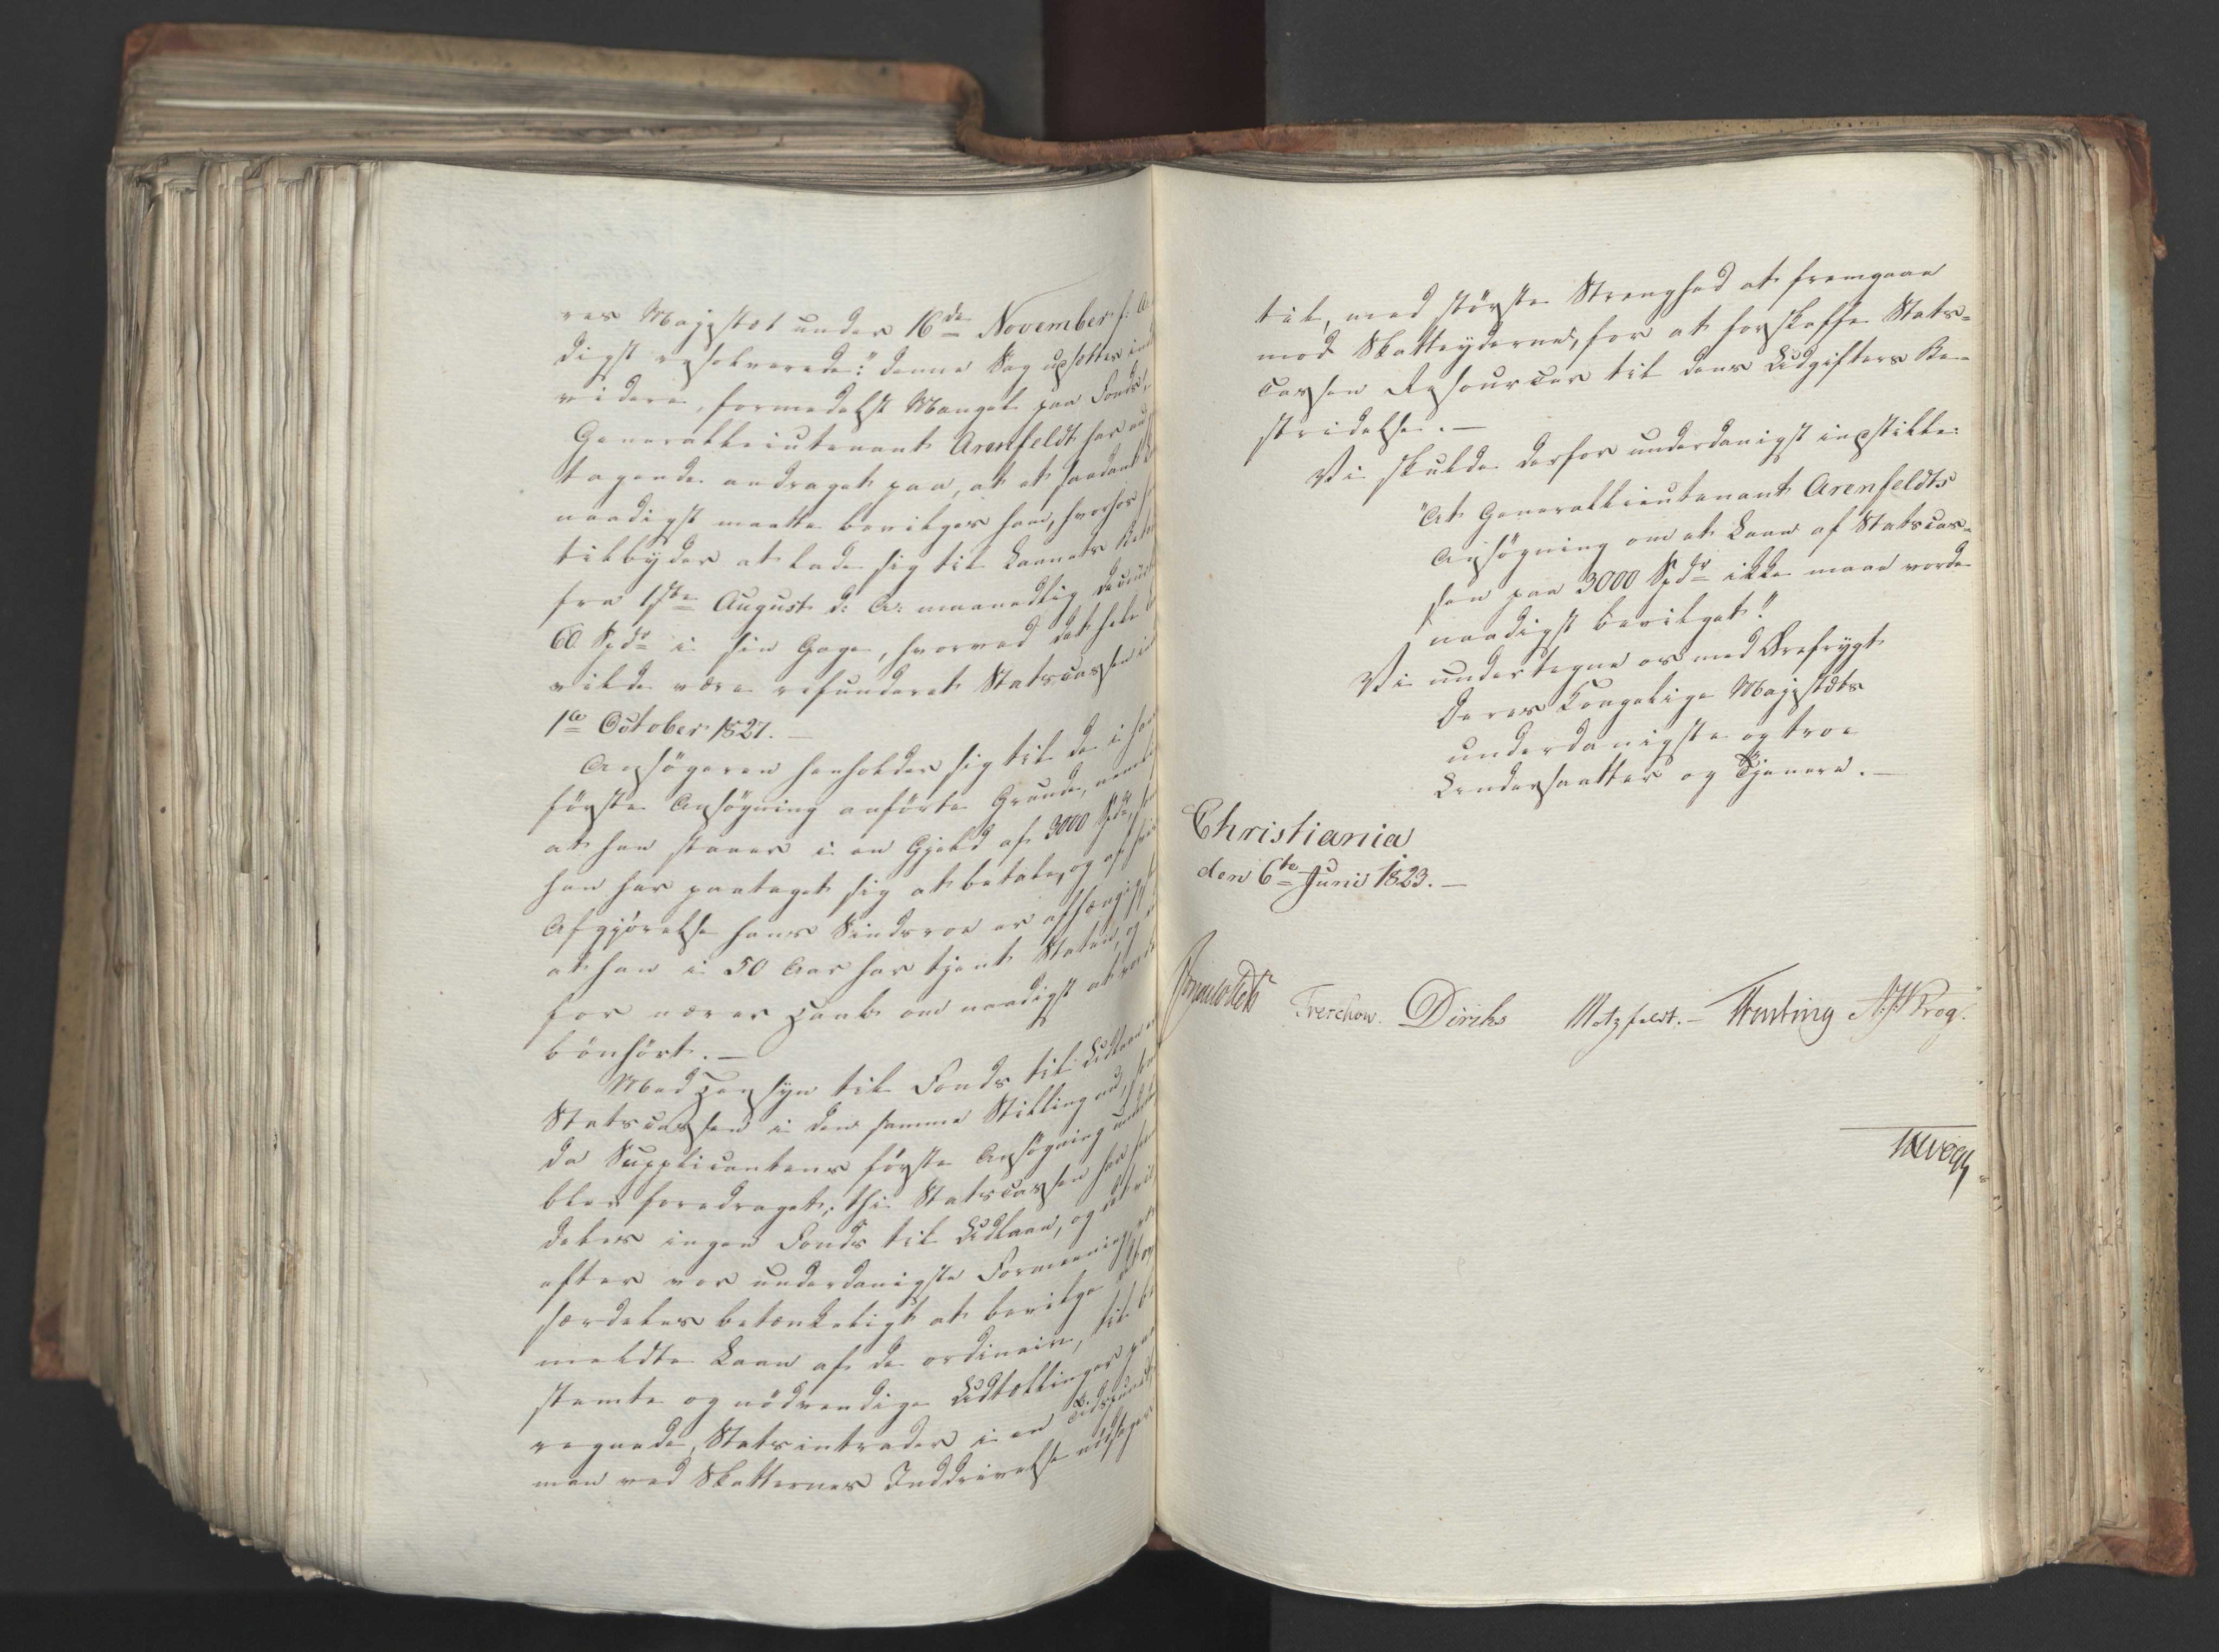 res Majestæt under 16de November f: A:
digst resolverede: "denne Sag udsættes indtil
videre, formedelst Mangel paa Fonds",
Generallieutenant Arenfeldt har
tagende andraget paa, at et saadant
naadigst maatte bevilges ham, hvorhos
tilbyder at lade sig til Laanets
fra 1ste August d: A: maanedlig decourtere
60 Spdr i sin Gage, hvorved det hele
vilde være refunderet Statscassen
1te October 1827. —
Ansøgeren henholder sig til de i
første Ansøgning anførte Grunde, nemlig
at han staaer i en Gjeld af 3000 Spdr, som
han har paataget sig at betale, og af
Afgjørelse hans Sindsroe er afhængig
at han i 50 Aar har tjent Staten, og
for nærer Haab om naadigst at vorde
bönhört. —
Med Hensyn til Fonds til Udlaan er
Statscassen i den samme Stilling nu, som
da Supplicantens første Ansøgning
blev foredraget; thi Statscassen har
deles ingen Fonds til Udlaan, og det vil
efter vor underdanigste Formeening
særdeles betænkeligt at bevilge
meldte Laan af de ordinaire, til be
stemte og nödvendige Udtællinger
regnede, Statsintrader i en Tidspunct,
man ved Skatternes Inddrivelse
til, med største Strenghed at fremgaae
mod Skatteyderne, for at forskaffe Stats-
cassen Resourcer til dens Udgifters Be-
stridelse. —
Vi skulde derfor underdanigst indstille:
"At Generallieutenant Arenfeldts
Ansøgning om et Laan af Statscas-
sen paa 3000 Spdr ikke maae vorde
naadigst bevilget."
Vi undertegne os med Ærefrygt
Deres Kongelige Majestæts
underdanigste og troe
Undersaatter og Tjenere. —
Christiania
den 6te Juni 1823. —
Treschow. Diriks Motzfeldt. —